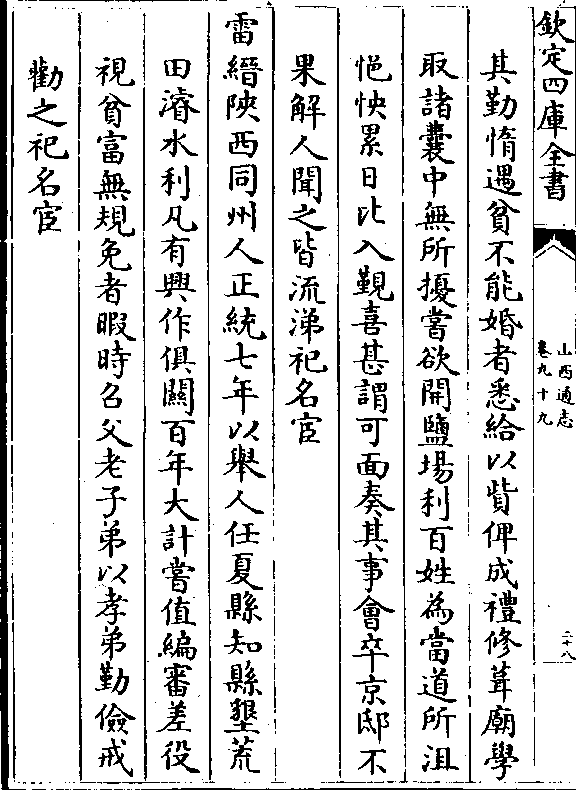 欽定四庫全書
山西通志
卷九十九
二十八
其勤惰遇貧不能婚者悉給以貲俾成禮修葺廟學
取諸囊中無所擾嘗欲開鹽場利百姓為當道所沮
悒怏累日比入覲喜甚謂可面奏其事會卒京邸不
果解人聞之皆流涕祀名宦
雷縉陝西同州人正統七年以舉人任夏縣知縣墾荒
田濬水利凡有興作俱關百年大計嘗值編審差役
視貧富無規免者暇時召父老子弟以孝弟勤儉戒
勸之祀名宦